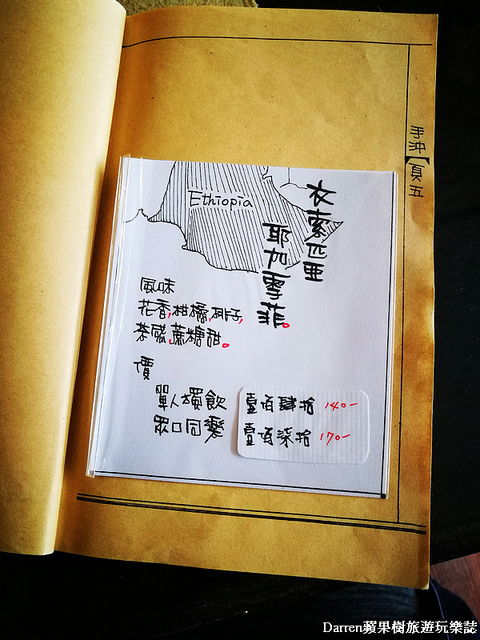 手沖【頁五
Ethiopia
衣索匹亞
耶加雪菲。
風味
花香,柑橘,梛子,
茶感,蔗糖甜。
價
單人獨飲 壹佰肆拾 140-
眾口同饗 壹佰柒拾 170-
Darren蘋果樹旅遊玩樂誌